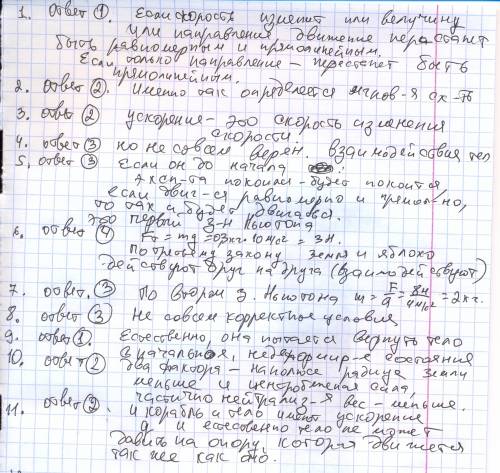 1. ответ ①. Если скорость изменит или величину
или направления, движение перестанет
быть равномерным и прямолинейным.
Если только направление - перестанет быть
прямолинейным.
2. ответ ②. Именно так определяется мгнов-я ск-ть
3. ответ ② ускорение - это скорость изменения
скорости.
4. ответ ③ но не совсем верен. взаимодействия тел
5. ответ ③ Если он до начала
покоился - будет покоится,
если двиг-ся равномерно и прямолно,
то так и будет двигаься.
это первый З-н Ньютона
6. ответ ④ Fт = mg = 0,3кг · 10м/с² = 3Н.
По третьему закону земля и яблоко
действуют друг на друга (взаимодействуют)
7. ответ. ③ По второму З. Ньютона m = F/a = 8Н/4м/с² = 2кг.
8. ответ ③ Не совсем корректное условия
9. ответ ①. Естественно, она пытается вернуть тело
в начальное, недеформир-е состояния
10. ответ ② два фактора - на полюсе радиус земли
меньше и центробежная сила,
частично нейтрализ-я вес - меньше.
11. ответ ②. и корабль и тело имеют ускорение
g и естественно тело не может
давить на опору, которая движется
так же как оно.